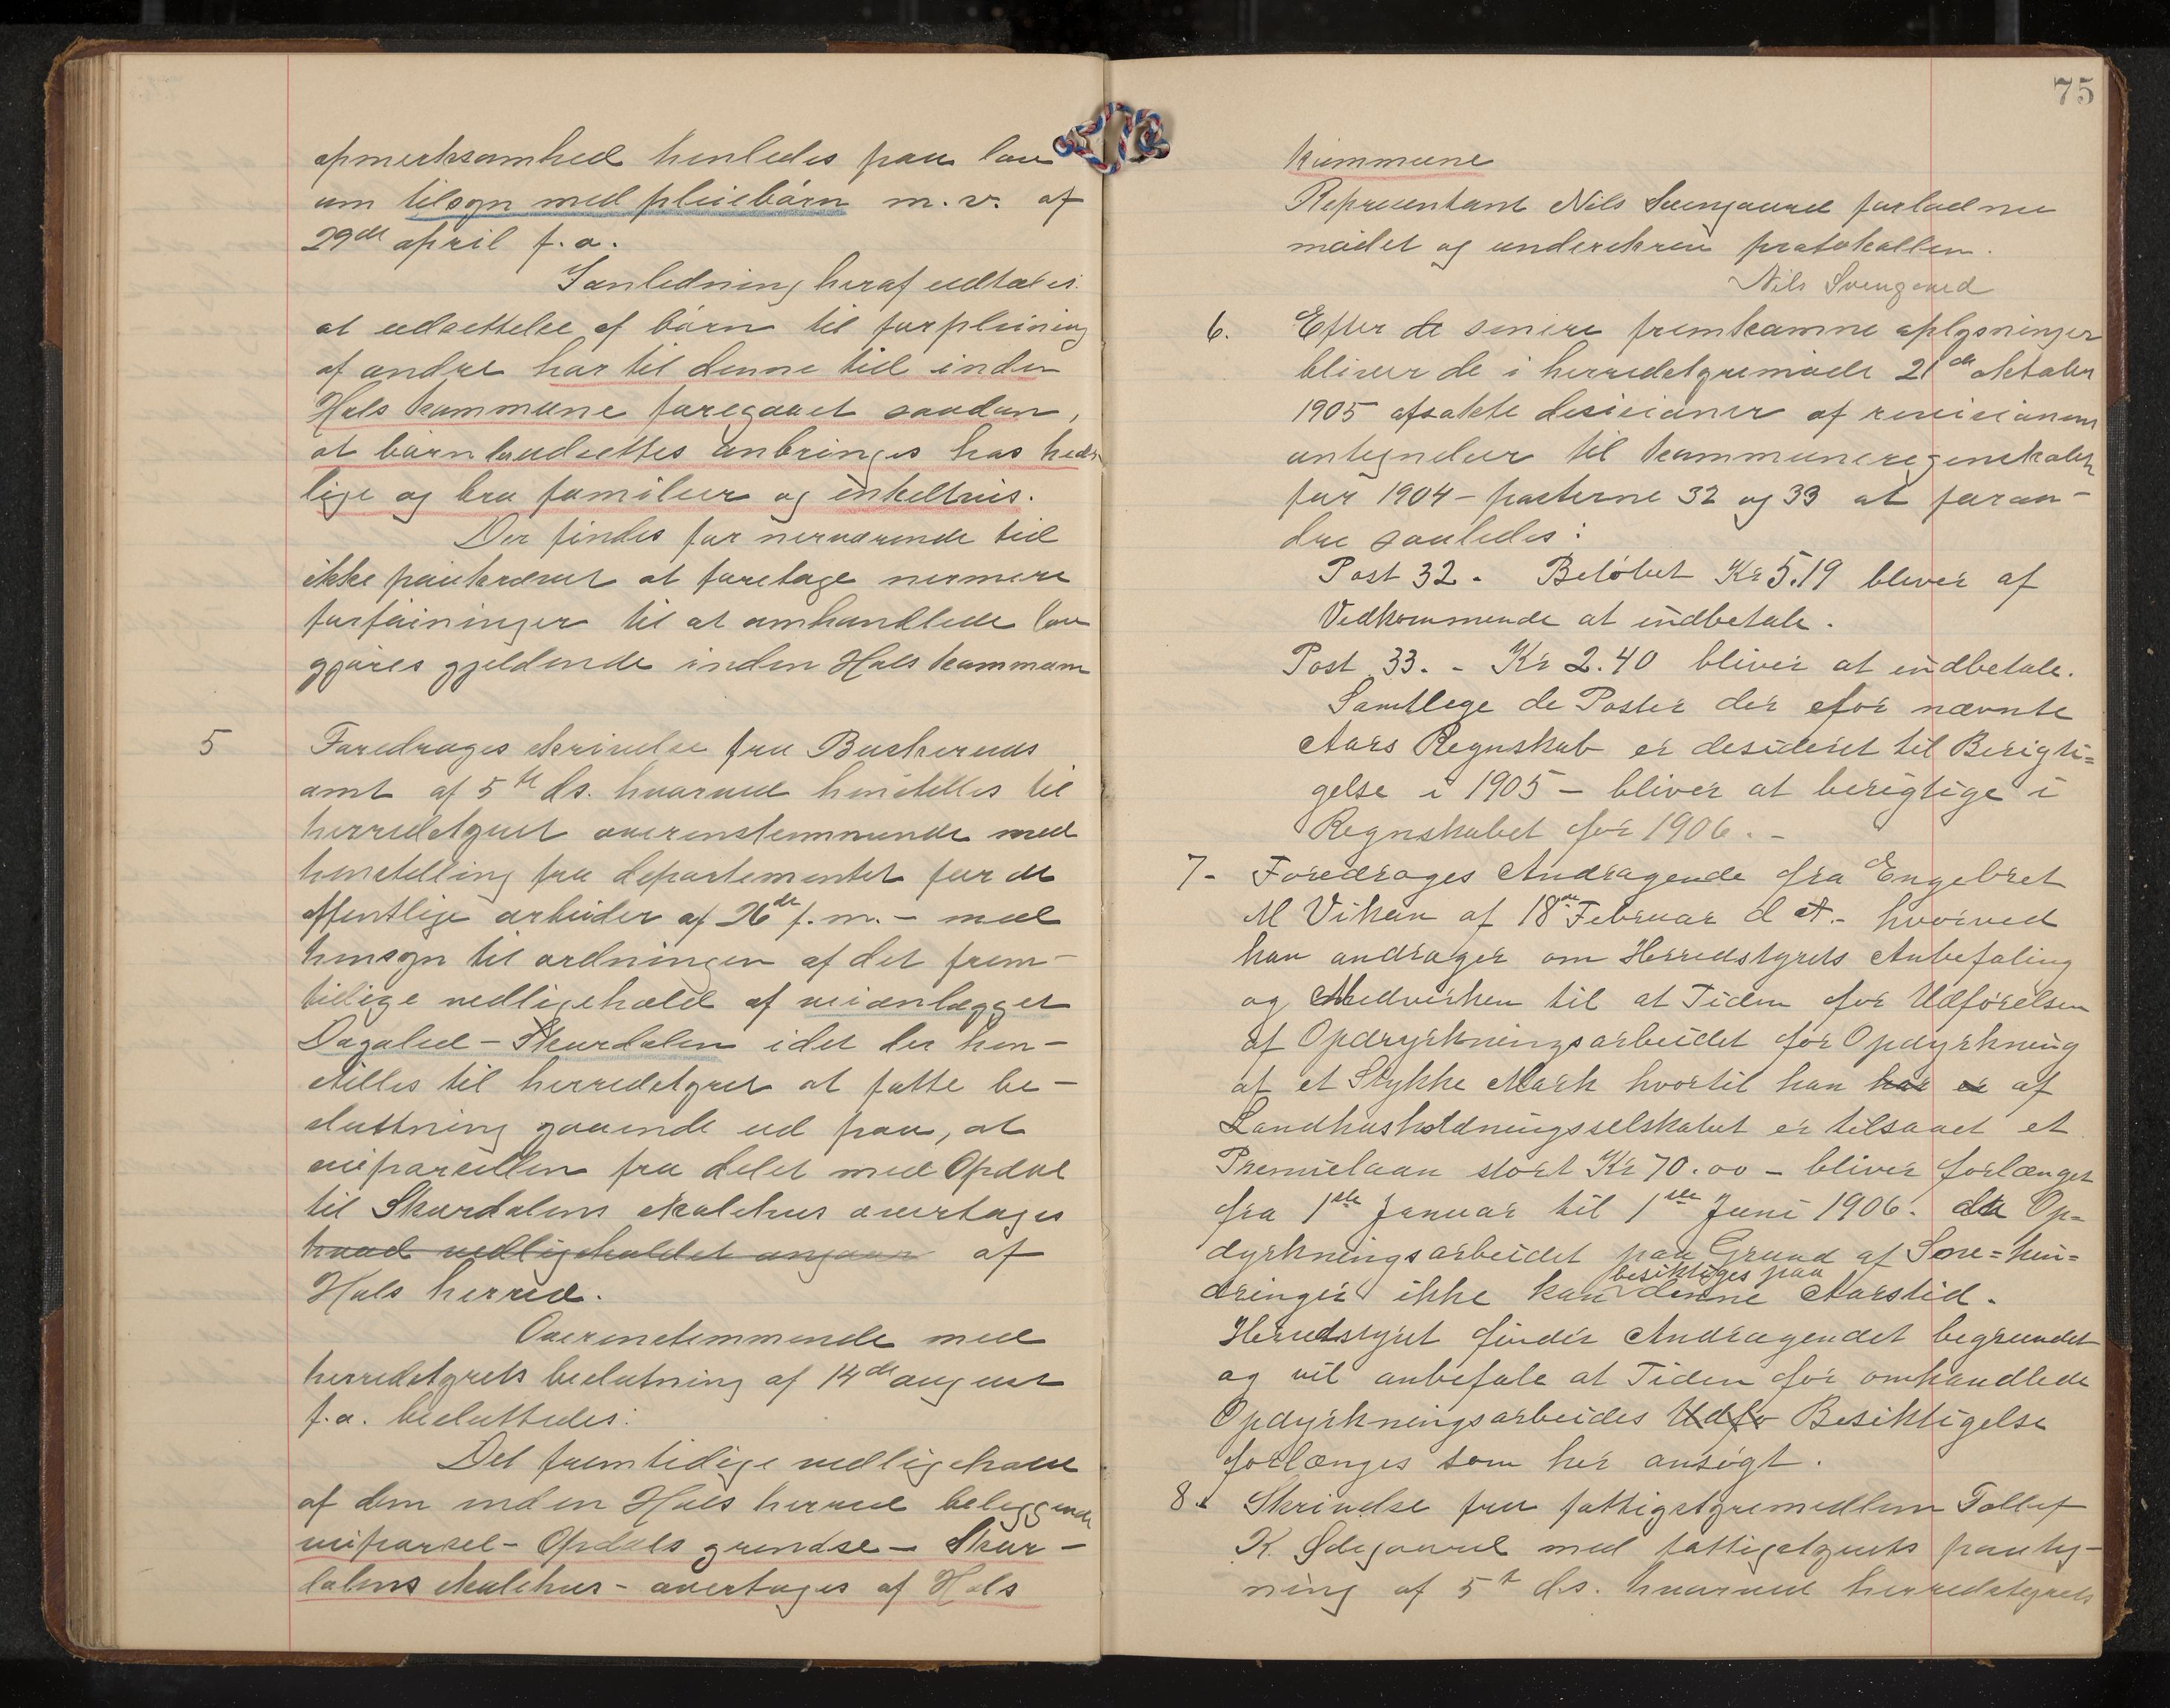 opmerksomhed henledes paa lov
om tilsyn med pleiebørn m.v. af
29de april f.a.
I anledning heraf udtales:
at udsettelse af børn til forpleining
af andre har til denne tid inden
Hols kommune foregaaet saadan,
at børn udsettes anbringes hos heder-
lige og bra familier og enkeltvis.
Der findes for nerværende tid
ikke paakrævet at foretage nermere
forføininger til at omhandlede lov
gjøres gjeldende inden Hols kommune
5 Foredroges skrivelse fra Buskeruds
amt af 5te ds. hvorved henstilles til
herredstyret overensstemmende med
henstilling fra departementet for de
offentlige arbeider af 26de f.m. – med
hensyn til ordningen af det frem-
tidige vedligehold af veianlægget
Dagalied – Skurdalen idet der hen-
stilles til herredstyret at fatte be-
slutning gaaende ud paa, at
veiparcellen fra delet med Opdal
til Skurdalens skolehus overtages
hvad vedligeholdet angaar af
Hols herred.
Overenstemmende med
herredstyrets beslutning af 14de august
f.a. besluttedes:
Det fremtidige vedligehold
af den inden Hols herred beliggende
veiparsel – Opdals grendse – Skur-
dalens skolehus – overtages af Hols
75
kommune
Representant Nils Svengaard forlod nu
mødet og underskrev protokollen.
Nils Svengaard
6. Efter de senere fremkomne oplysninger
bliver de i herredstyremøde 21de oktober
1905 afsakte desisioner af revisionens
antegnelser til kommuneregnskabet
for 1904 – posterne 32 og 33 at foran-
dre saaledes:
Post 32. Beløbet Kr 5.19 bliver af
Vedkommende at indbetale.
Post 33. – Kr 2.40 bliver at indbetale.
Samtlege de Poster der for nævnte
Aars Regnskab er desideret til Berigti=
gelse i 1905 – bliver at berigtige i
Regnskabet for 1906. –
7- Foredroges Andragende fra Engebret
M Viken af 18de Februar d A.- hvorved
han andrager om Herredstyrets Anbefaling
og Medvirken til at Tiden for Udførelsen
af Opdyrkningsarbeidet for Opdyrkning
af et Stykke Mark hvortil han har er af
Landhusholdningsselskabet er tilsaaet et
Premielaan stort Kr 70.00 – bliver forlænget
fra 1ste Januar til 1ste Juni 1906. da Op=
dyrkningsarbeidet paa Grund af Sne=hin=
besiktiges paa
dringer ikke kan denne Aarstid.
Herredstyret finder Andragendet begrundet
og vil anbefale at Tiden for omhandlede
Opdyrkningsarbeides Udfø Besiktigelse
forlænges som her ansøgt.
8. Skrivelse fra fattigstyremedlem Tollef
K. Ødegaard med fattigstyrets paateg-
ning af 5te ds. hvorved herredstyrets